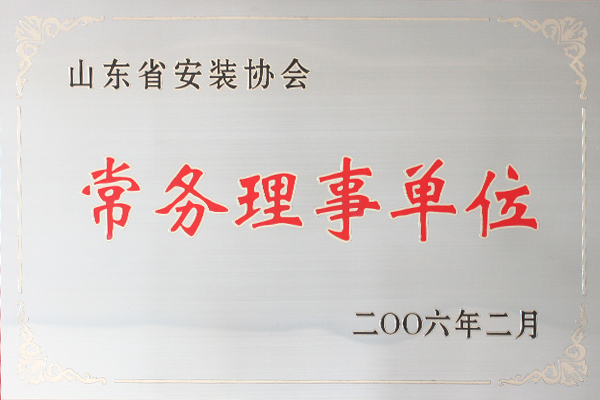 山东省安装协会
常务理事单位
二〇〇六年二月